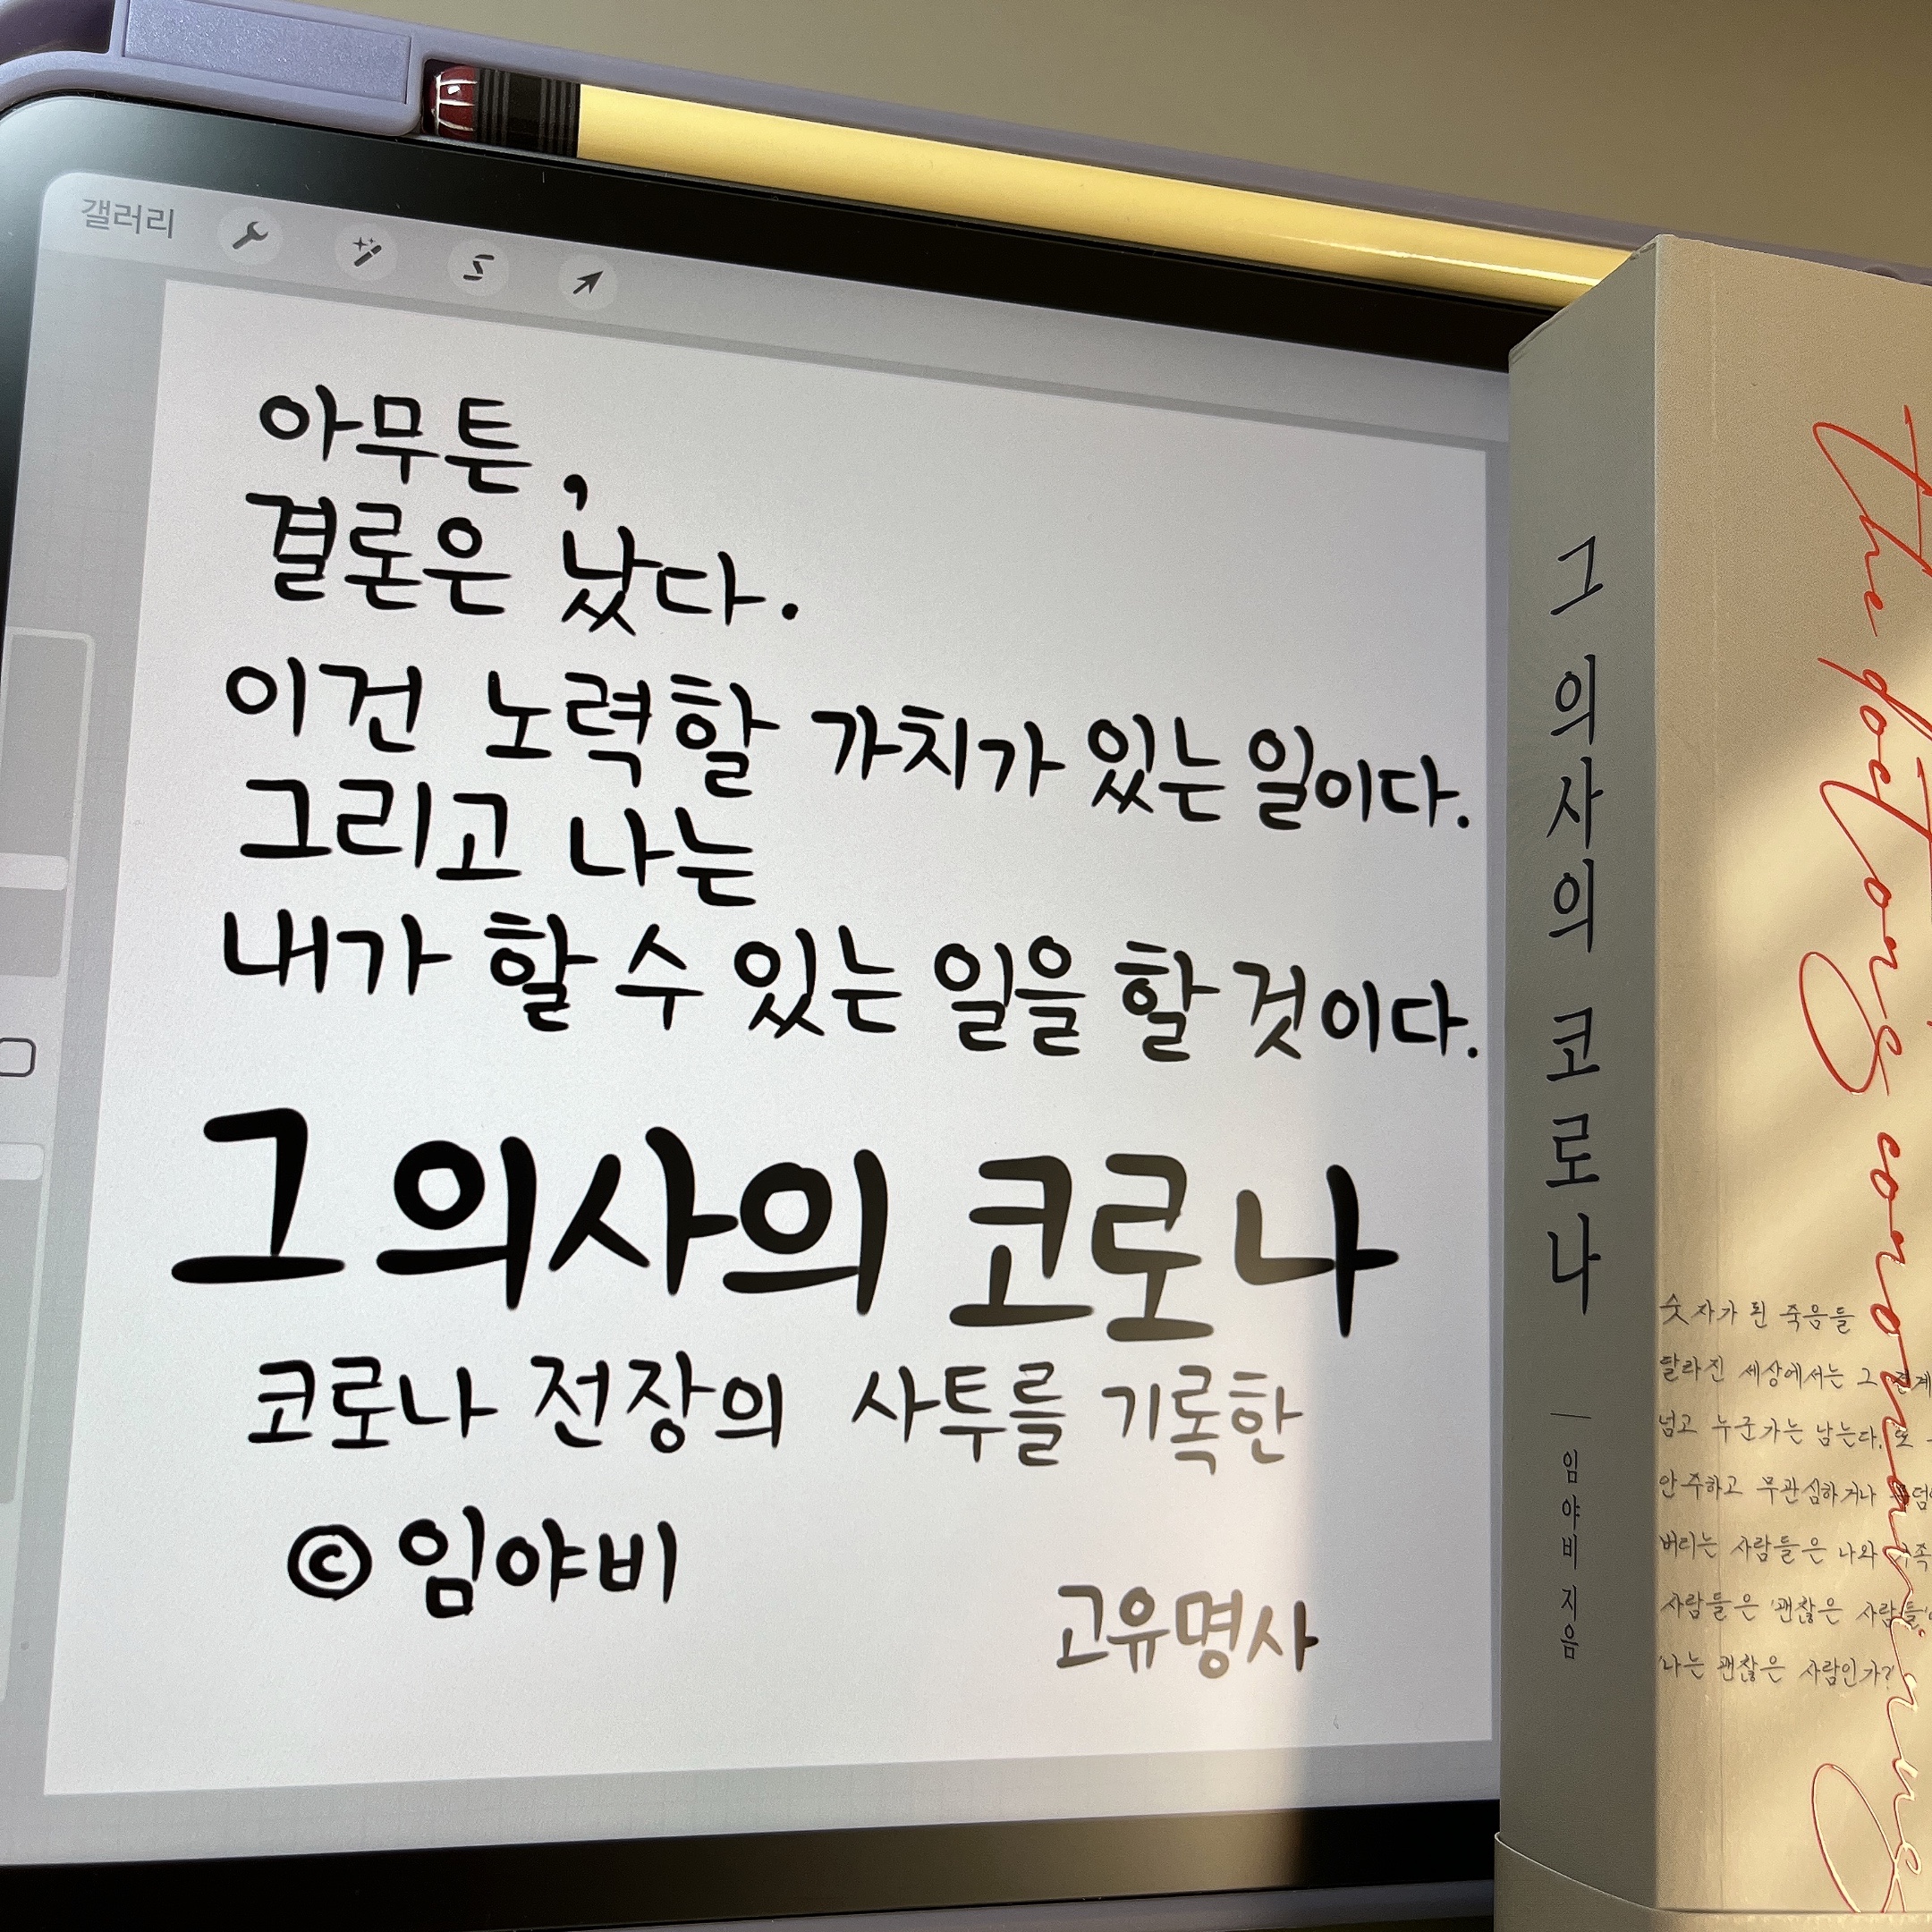 갤러리
아무튼,
결론은 났다.
이건 노력할 가치가 있는 일이다.
그리고 나는
내가 할 수 있는 일을 할 것이다.
그 의사의 코로나
코로나 전장의 사투를 기록한
© 임야비
고유명사
그 의사의 코로나
임야비 지음
the doctor's corona
숫자가 된 죽음들
달라진 세상에서는 그
넘고 누군가는 남는다. 또
안주하고 무관심하거나
버리는 사람들은 나와
사람들은 '괜찮은 사람들'
'나는 괜찮은 사람인가?'